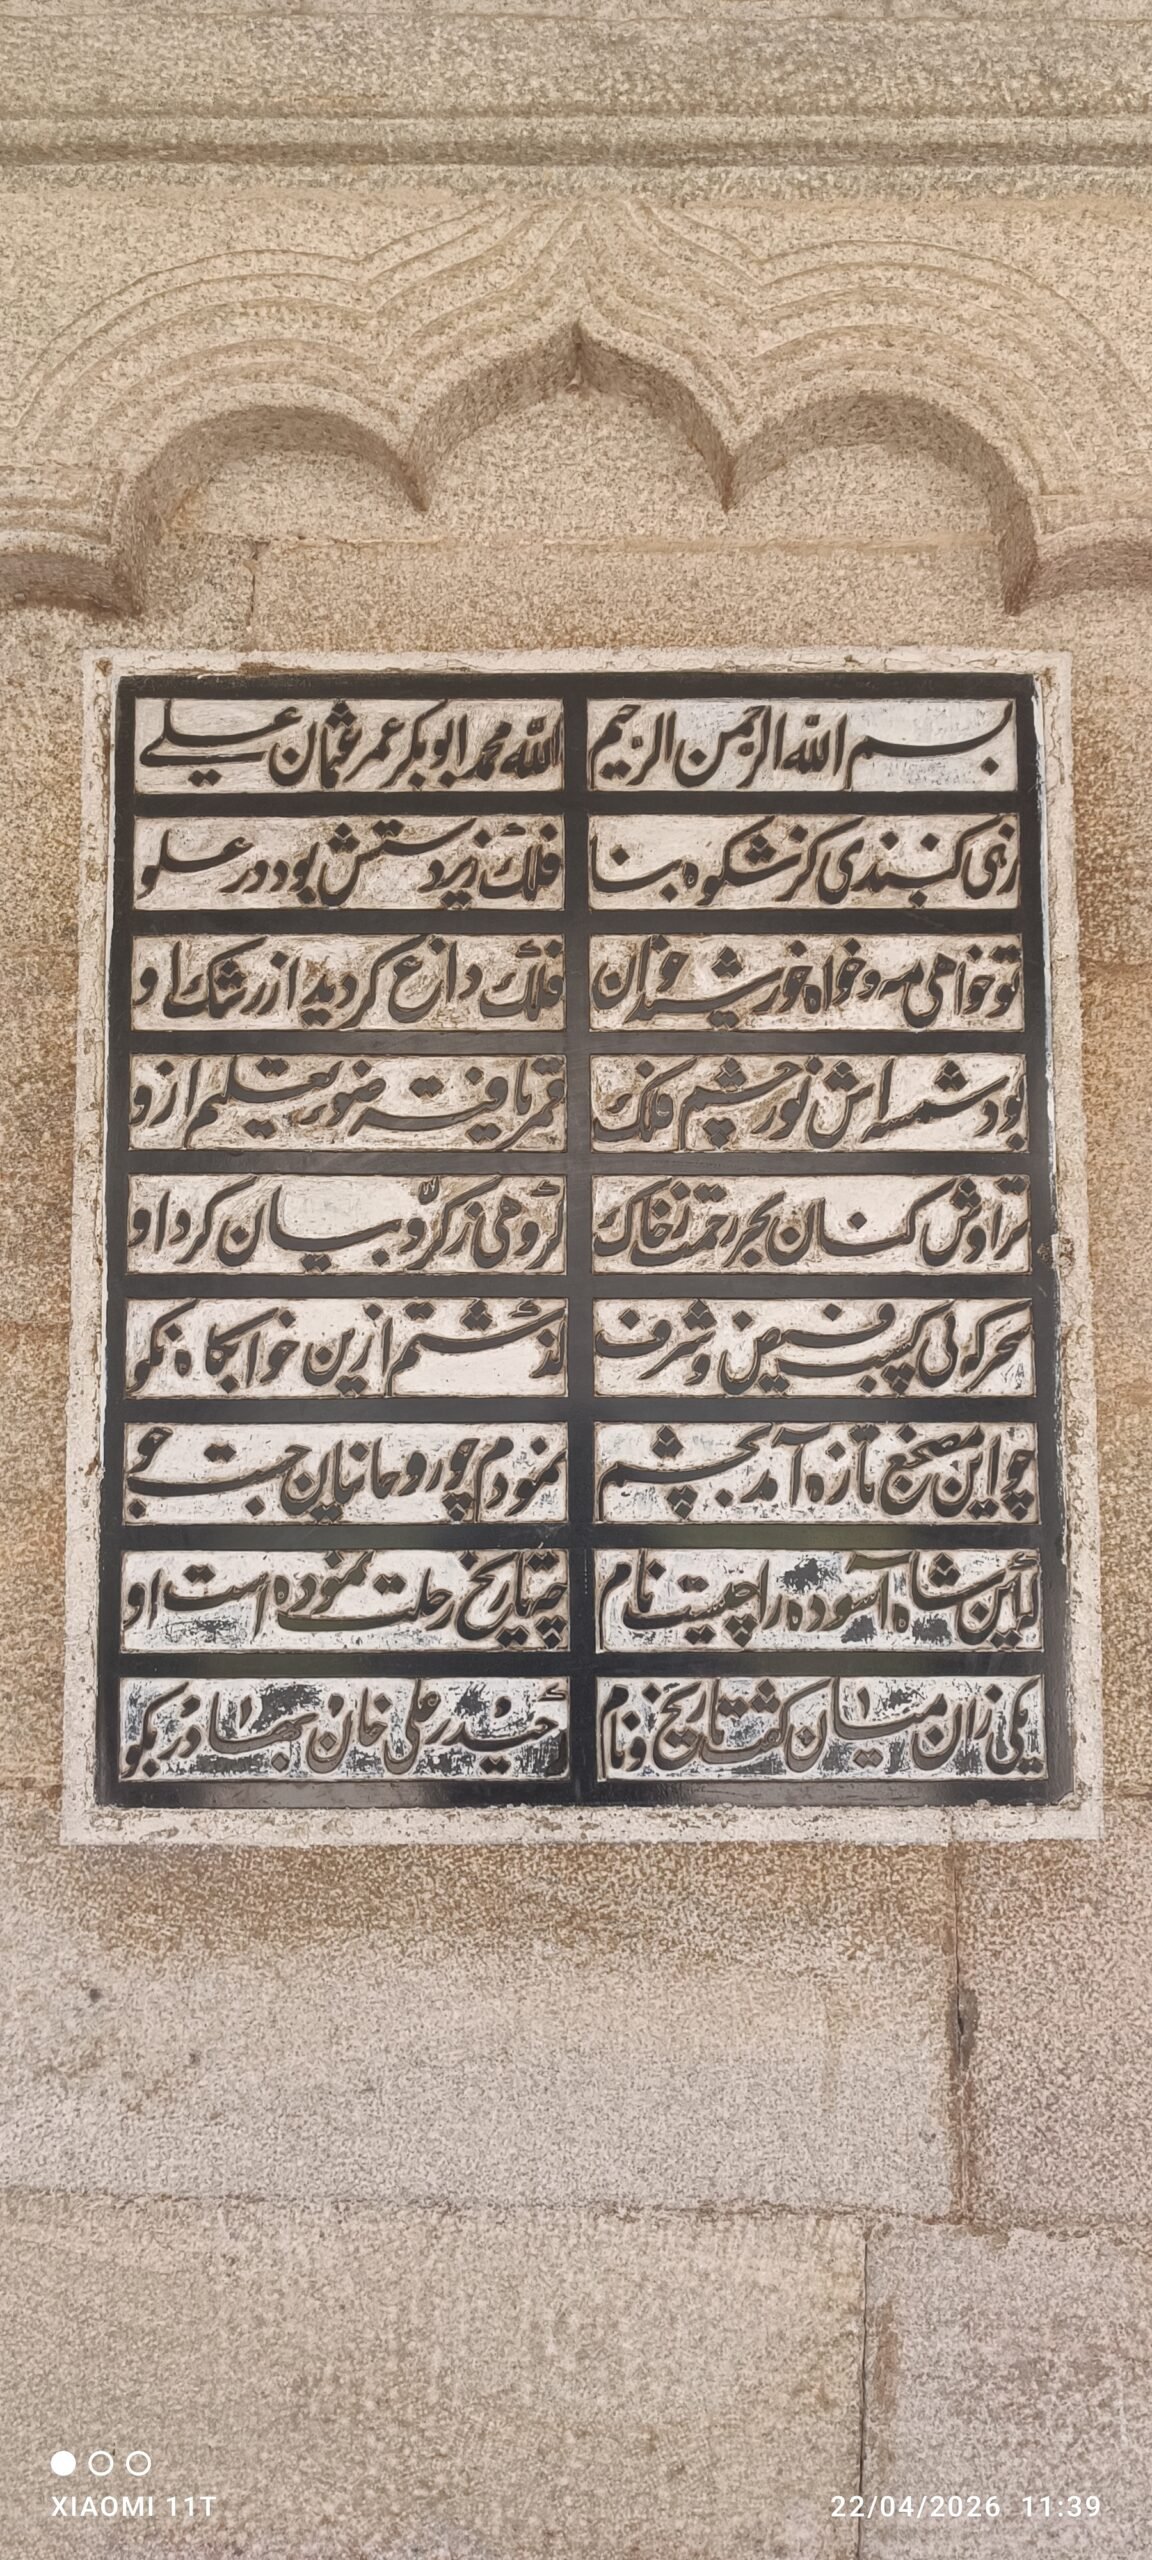 بسم الله الرحمن الرحیم
الله محمد ابوبکر عمر عثمان علے
زهی کنبدی کز شکوه بنا
فلك زیر دستش بود در علو
تو خواهی مه و خواه خورشید خوان
فلك داغ کردید از رشك او
بود شمسه اش نور چشم فلك
قمر یافته نور تعلیم ازو
تراوش کنان بحر رحمت ز خاك
کروهی ز کروبیان کرد او
سحر کوئی کسب فیض و شرف
کذشتم ازین خوابکاه نکو
چو این مضجع تازه آمد بچشم
نمودم چو روحانیان جست جو
که این شاه آسوده را چیست نام
چه تاریخ رحلت نموده است او
یکی زان میان کفت تاریخ و نام
که حیدر علی خان بهادر بکو
XIAOMI 11T
22/04/2026 11:39